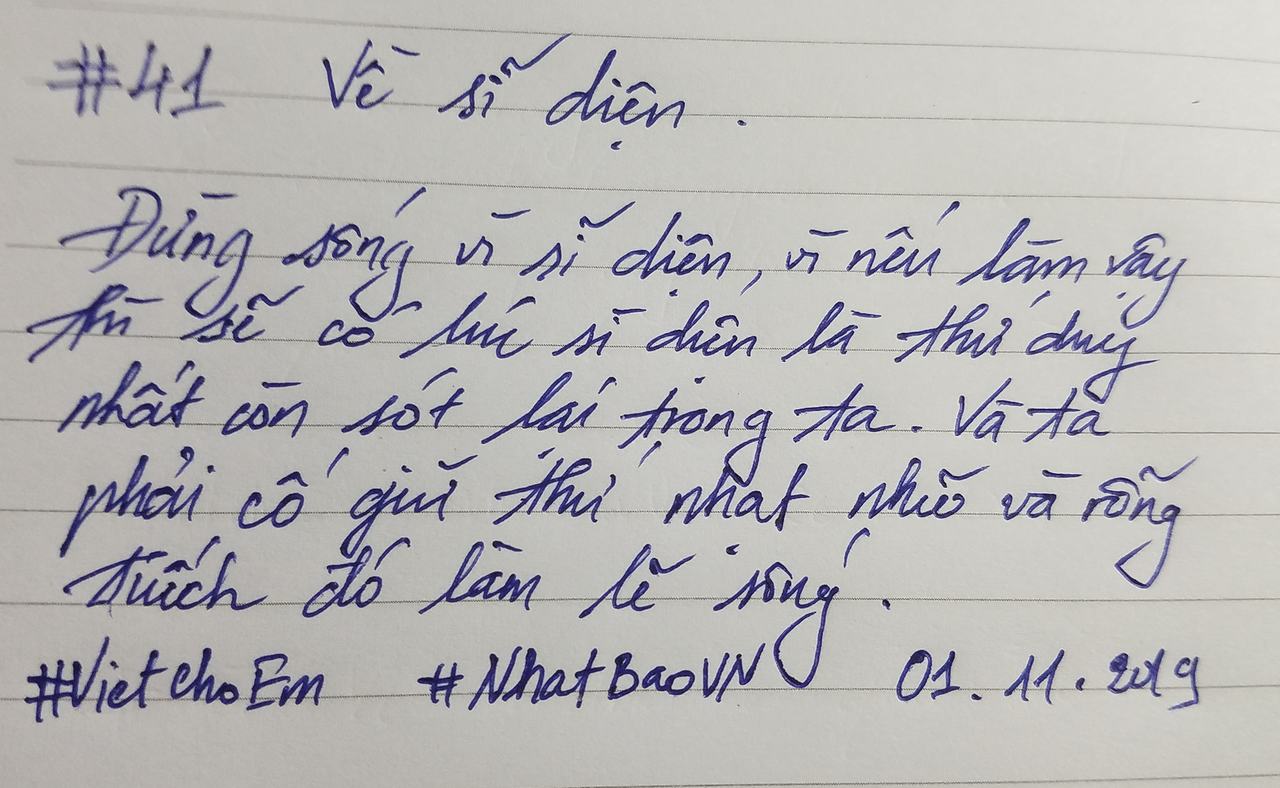 #41 Về sĩ diện.
Đừng sống vì sĩ diện, vì nếu làm vậy
thì sẽ có lúc sĩ diện là thứ duy
nhất còn sót lại trong ta. Và ta
phải cố giữ thứ nhạt nhẽo và rỗng
tuếch đó làm lẽ sống.
#VietchoEm #NhatBaoVN 01.11.2019